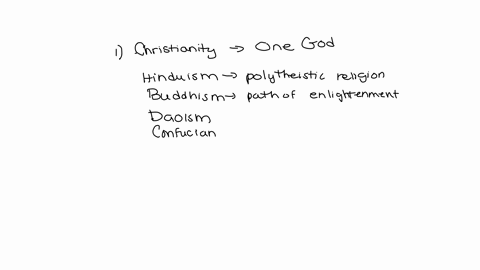 1) Christianity → One God
Hinduism → polytheistic religion
Buddhism → path of enlightenment
Daoism
Confucian